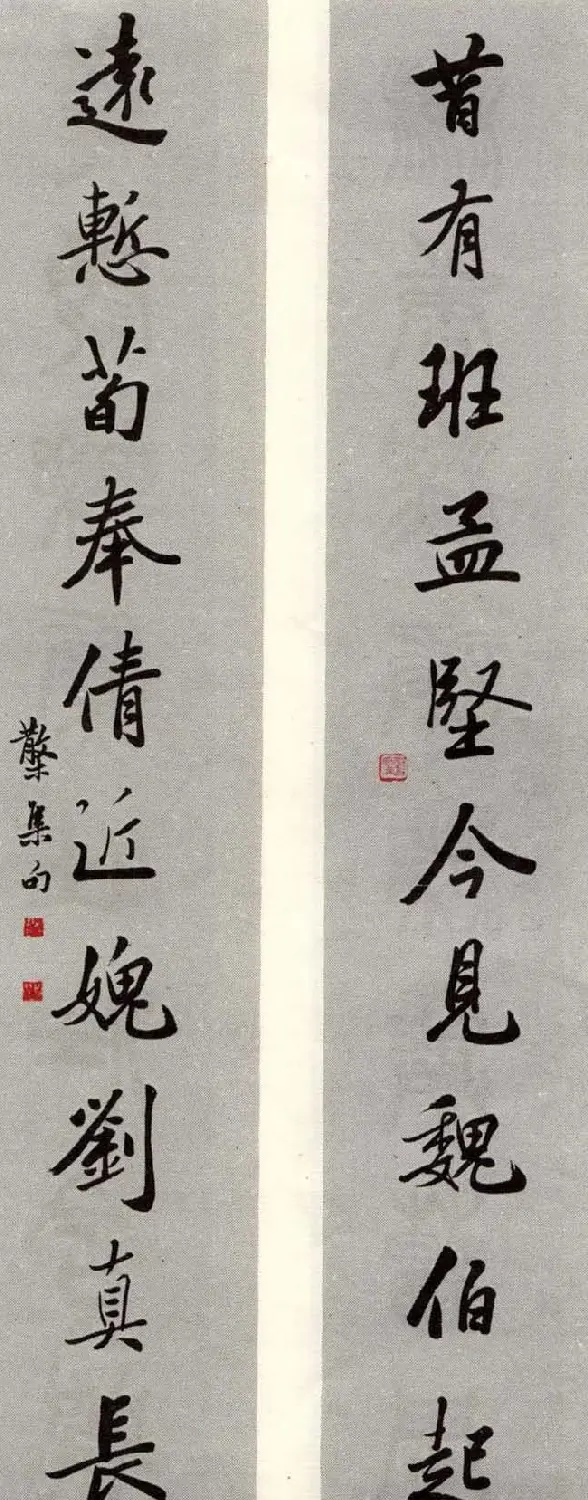 昔有班孟堅今見魏伯起
遠慙荀奉倩近媿劉真長
檠集句